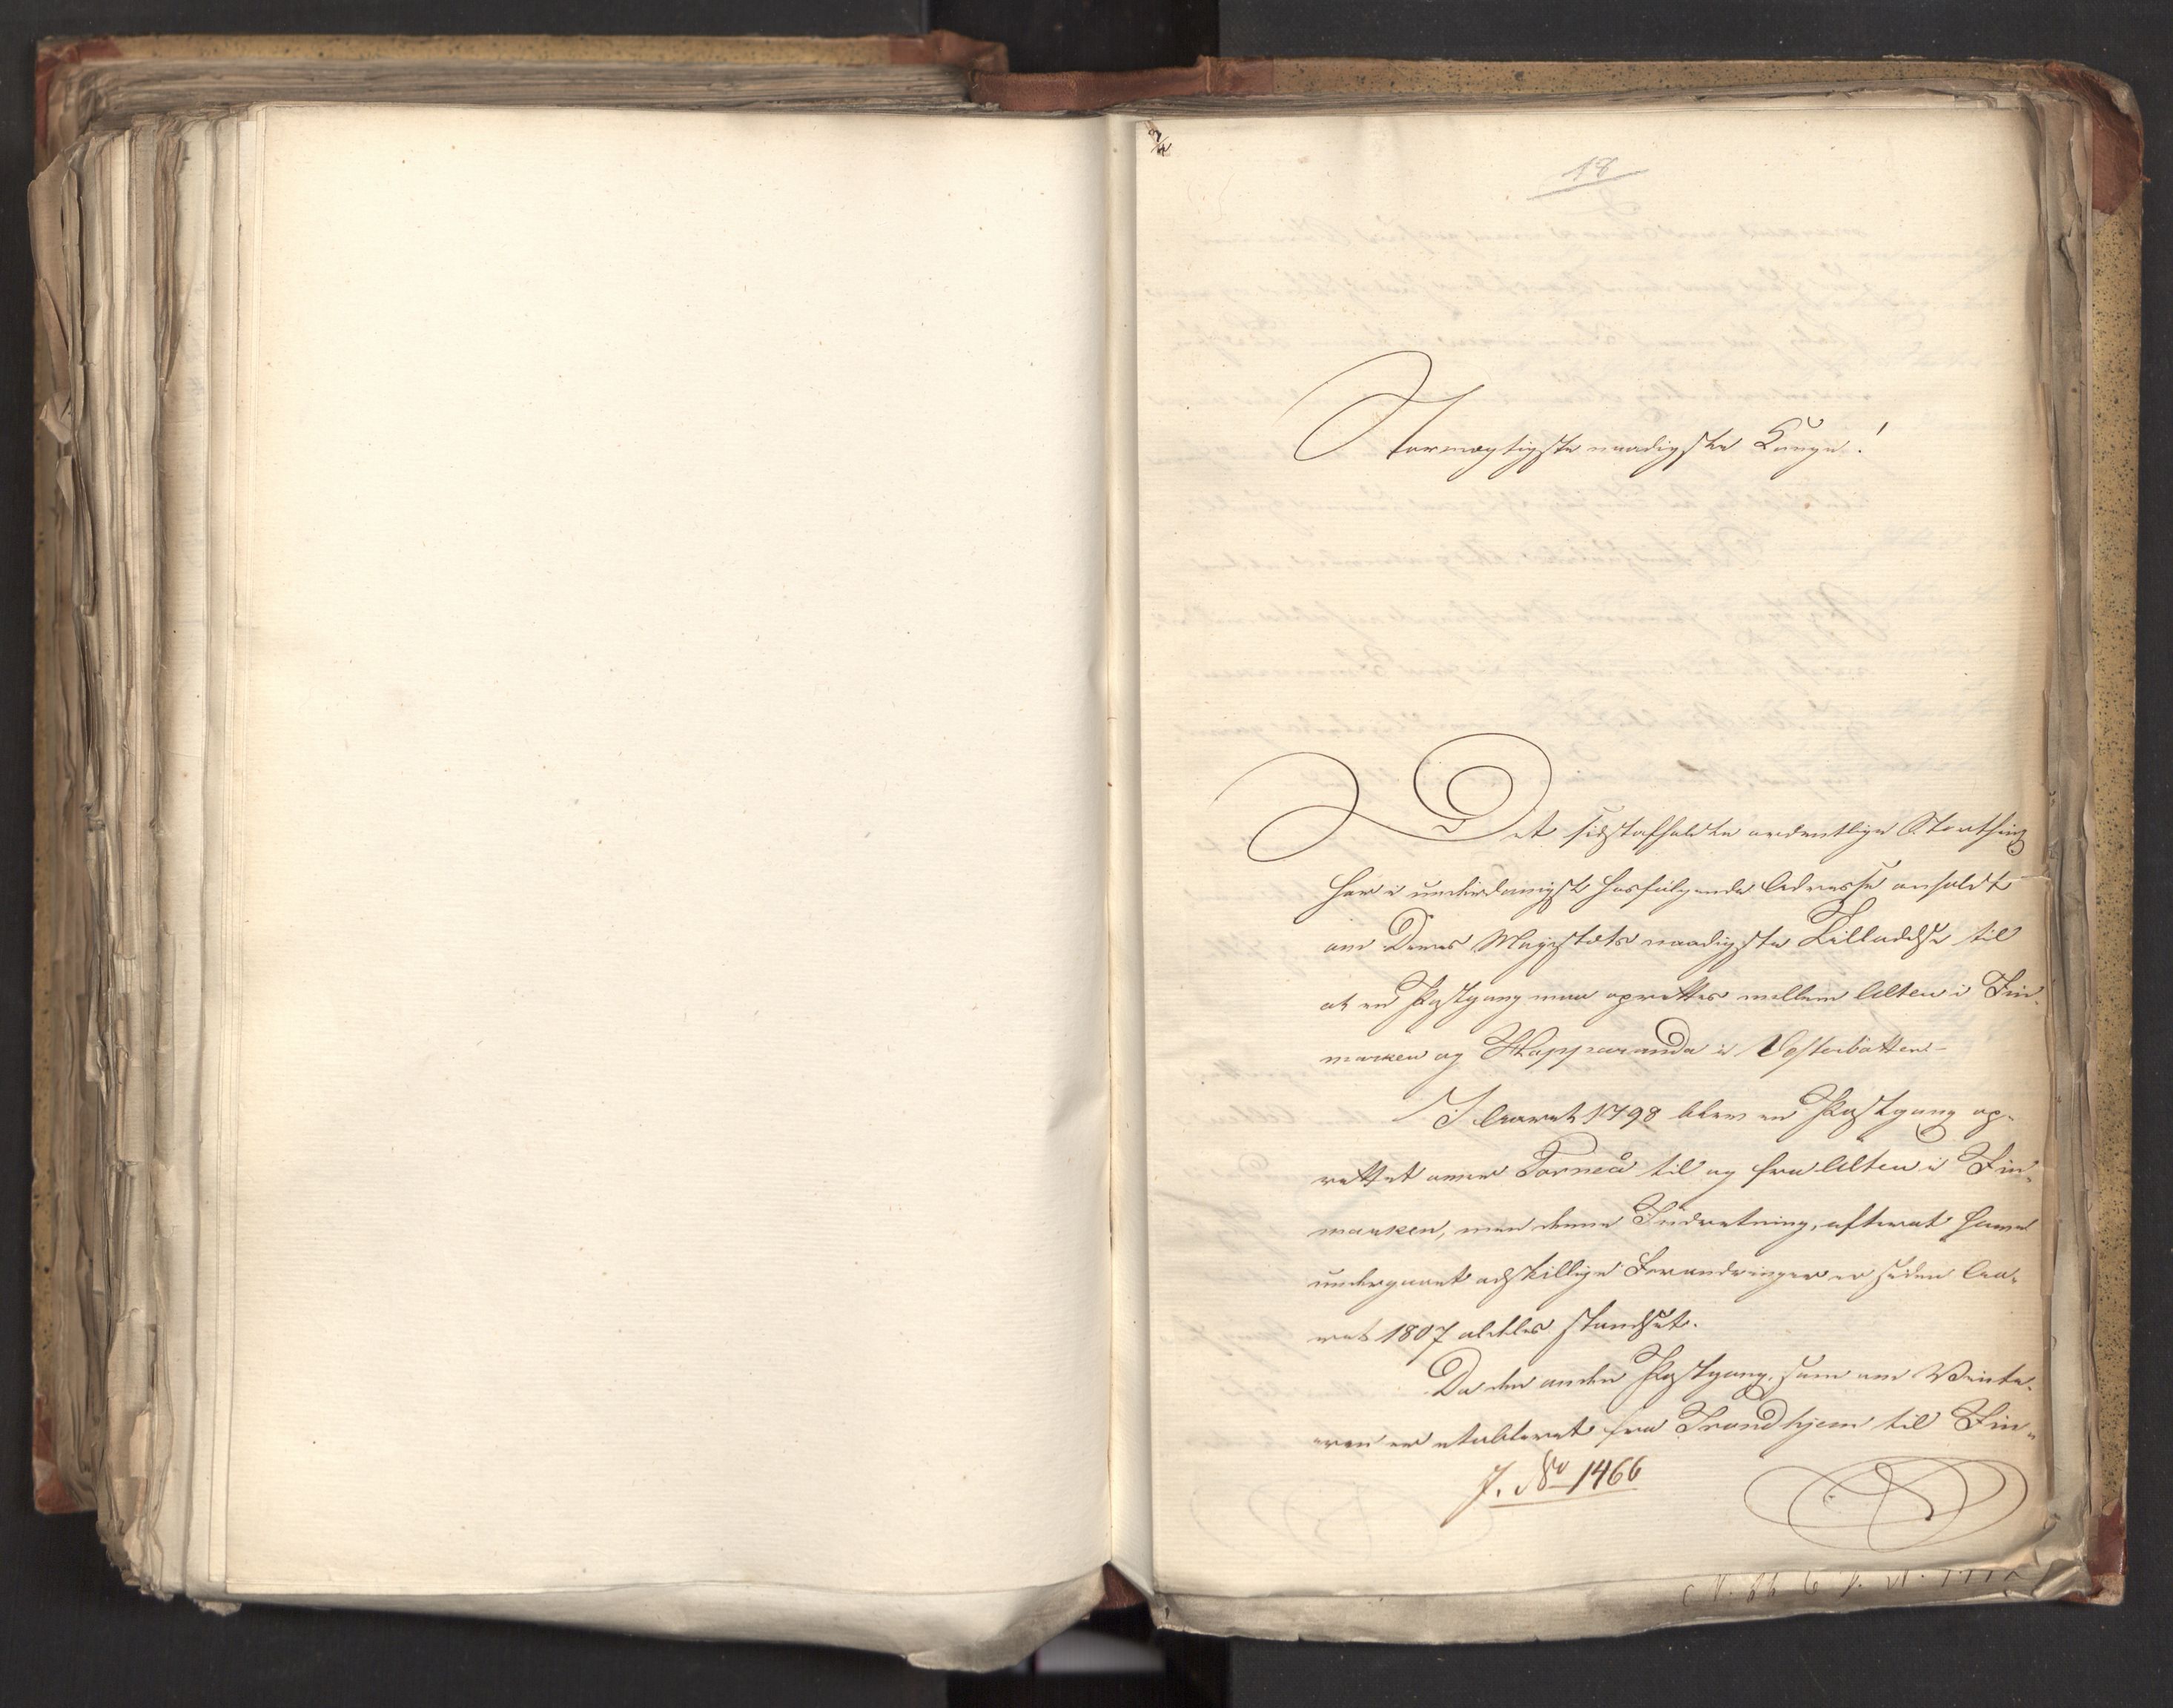 18
Stormægtigste naadigste Konge!
Det sidstafholdte ordentlige Storthing
har i underdanigst hosfølgende Adresse anholdt
om Deres Majestæts naadigste Tilladelse til
at en Postgang maa oprettes mellem Alten i Fin-
marken og Happaranda i Vesterbotten-
I Aaret 1798 blev en Postgang op-
rettet over Torneå til og fra Alten i Fin-
marken, men denne Indretning, efterat have
undergaaet adskillige Forandringer er siden Aa-
ret 1807 aldeles standset.
Da den anden Postgang, som om Vinte-
eren er etableret fra Trondhjem til Fin-
J. No 1466